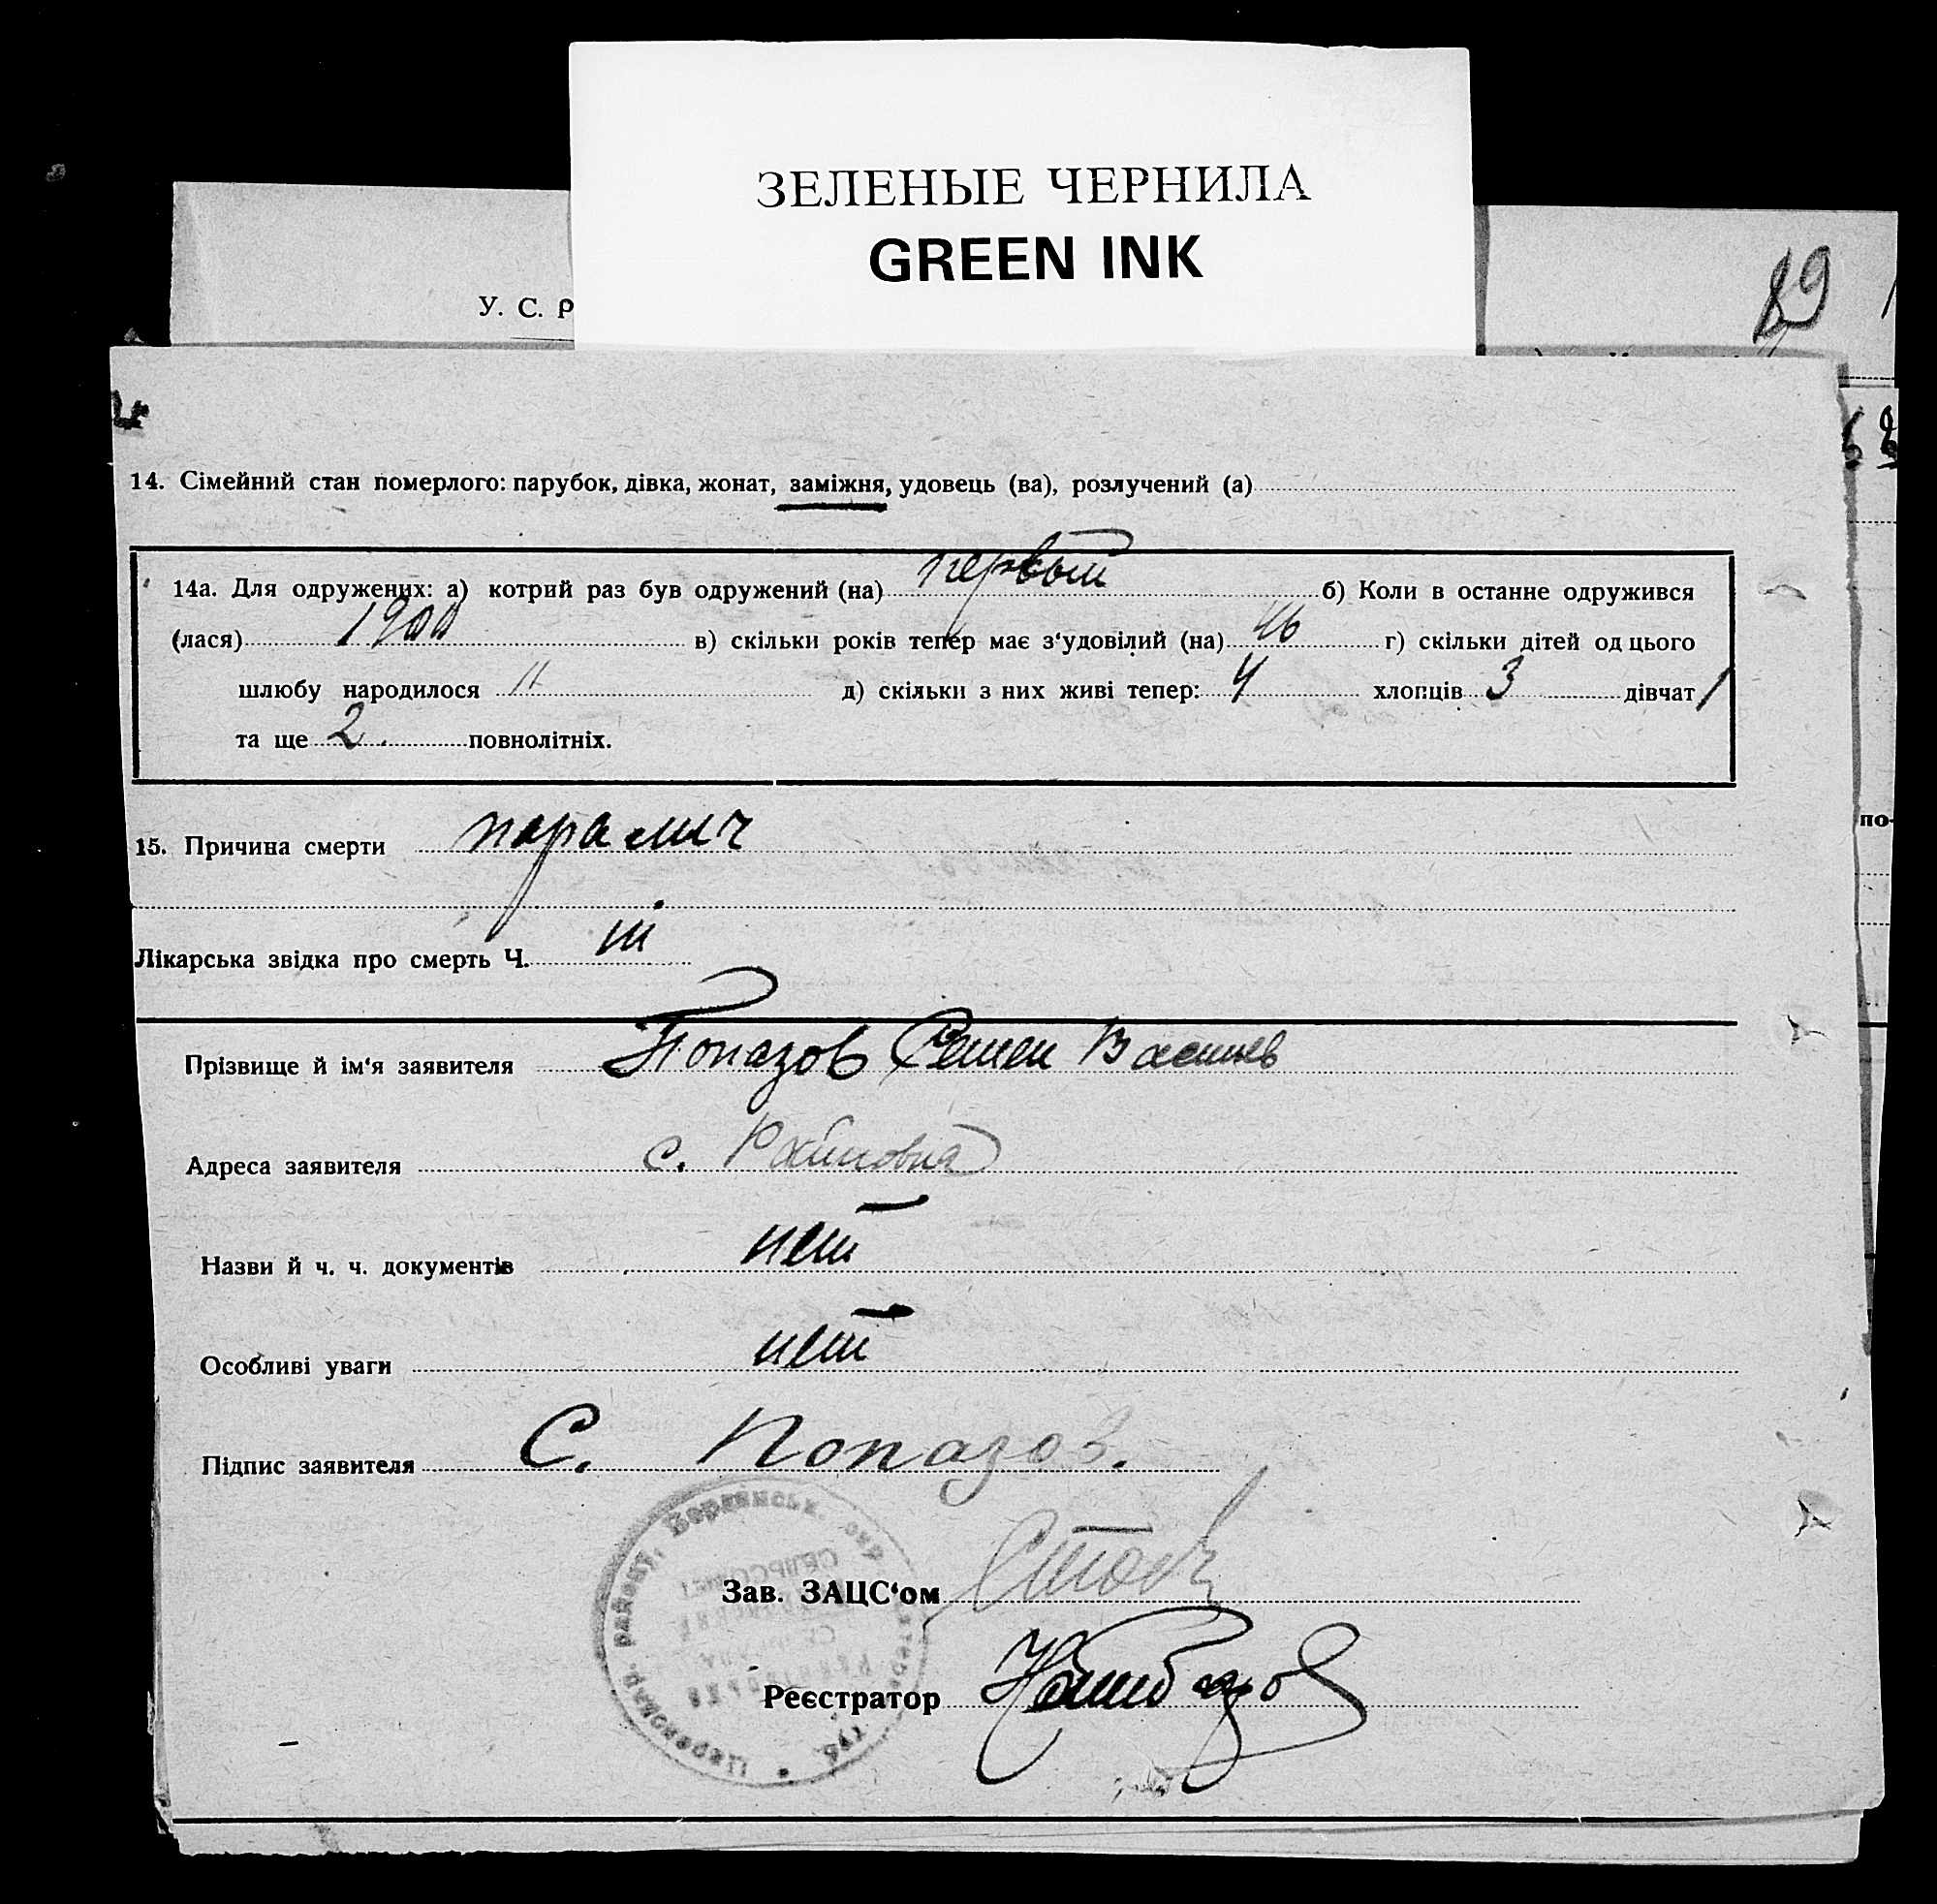 ЗЕЛЕНЫЕ ЧЕРНИЛА
GREEN INK
У. С. Р
89
14. Сімейний стан померлого: парубок, дівка, жонат, заміжня, удовець (ва), розлучений (а)
14а. Для одружених: а) котрий раз був одружений (на) первый б) Коли в останне одружився
(лася) 1900 в) скільки років тепер має з‘удовілий (на) 46 г) скільки дітей од цього
шлюбу народилося 11 д) скільки з них живі тепер: 4 хлопців 3 дівчат 1
та ще 2 повнолітніх.
по-
15. Причина смерти паралич
Лікарська звідка про смерть Ч.
Прізвище й ім‘я заявителя Попазов Семен Васильев
Адреса заявителя с. Райновка
Назви й ч. ч. документів нет
Особливі уваги нет
Підпис заявителя С. Попазов.
Бердянськ. окр
Церековар. району,
губ.
СЕЛЬСОВЕТ
Зав. ЗАЦС‘ом
Реєстратор